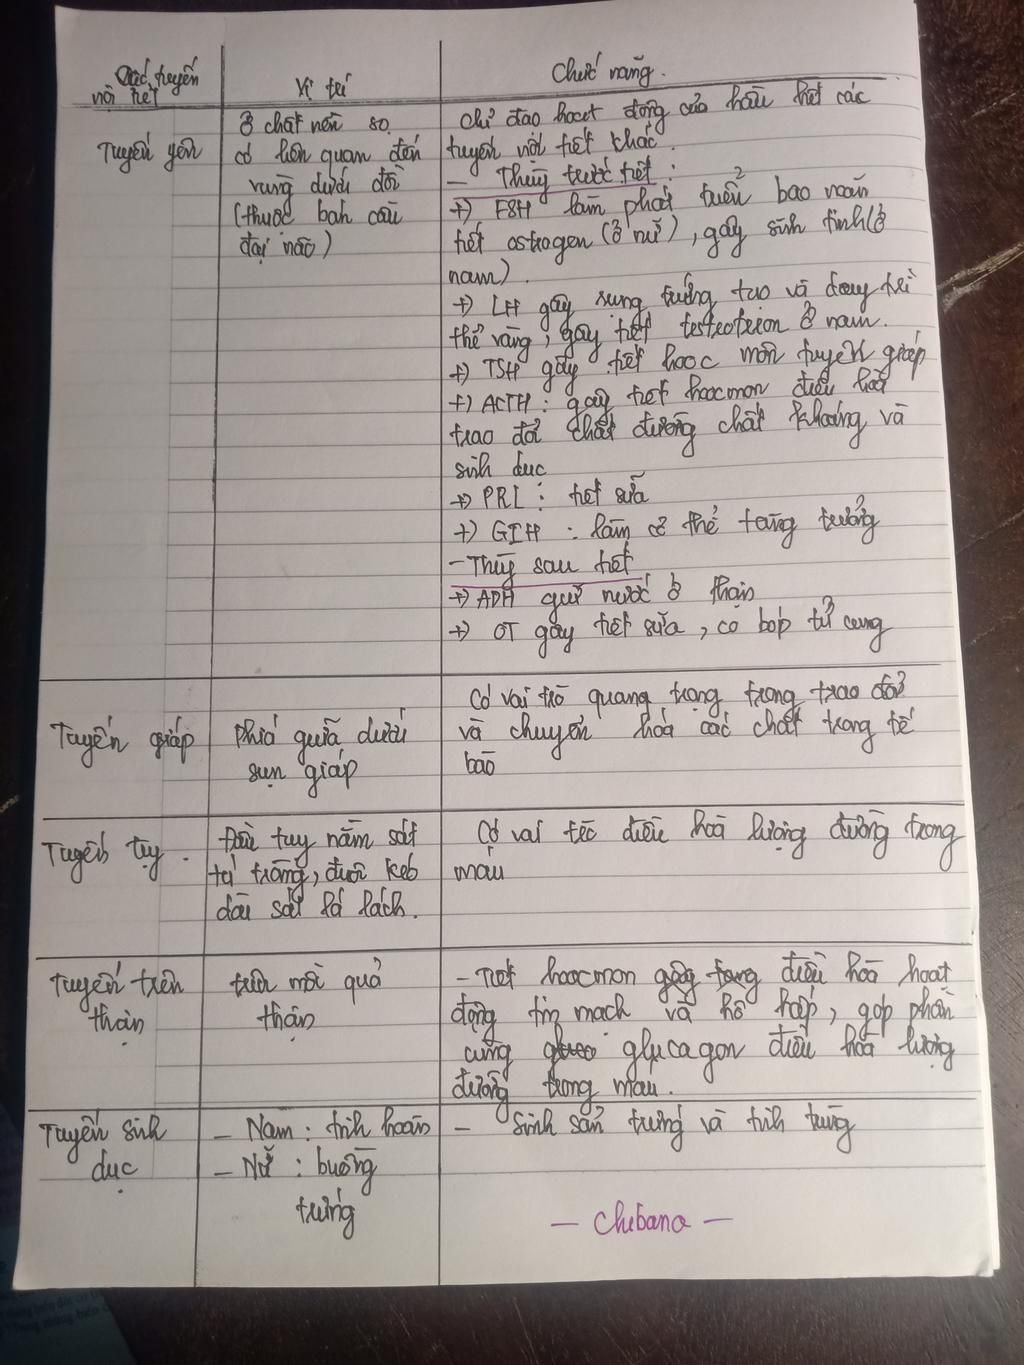 Các tuyến
nội tiết
Vị trí
Chức năng.
Tuyến yên
Ở chất nền sọ
có liên quan đến
vùng dưới đồi
(thuộc bán cầu
đại não)
chỉ đạo hoạt động của hầu hết các
tuyến nội tiết khác.
- Thùy trước tiết :
+) FSH làm phát triển bao noãn
tiết ostrogen (ở nữ), gây sinh tinh (ở
nam).
+) LH gây rụng trứng tạo và duy trì
thể vàng, gây tiết testosteron ở nam.
+) TSH gây tiết hooc môn tuyến giáp
+) ACTH : gây tiết hoocmon điều hoà
trao đổi chất đường chất khoáng và
sinh dục
+) PRL : tiết sữa
+) GTH : làm cơ thể tăng trưởng
- Thùy sau tiết
+) ADH giữ nước ở thận
+) OT gây tiết sữa, co bóp tử cung
Tuyến giáp
Phía giữa dưới
sụn giáp
Có vai trò quang trọng trong trao đổi
và chuyển hóa các chất trong tế
bào
Tuyến tụy.
Đầu tuy nằm sát
tá tràng, đuôi kéo
dài sát lá lách.
Có vai trò điều hoà lượng đường trong
máu
Tuyến trên
thận
trên mỗi quả
thận
- Tiết hoocmon điều hoà hoạt
động tim mạch và hô hấp, góp phần
cùng glucagon điều hoà lượng
đường trong máu.
Tuyến sinh
dục
- Nam : tinh hoàn
- Nữ : buồng
trứng
- Sinh sản trứng và tinh trùng
- Chibana -